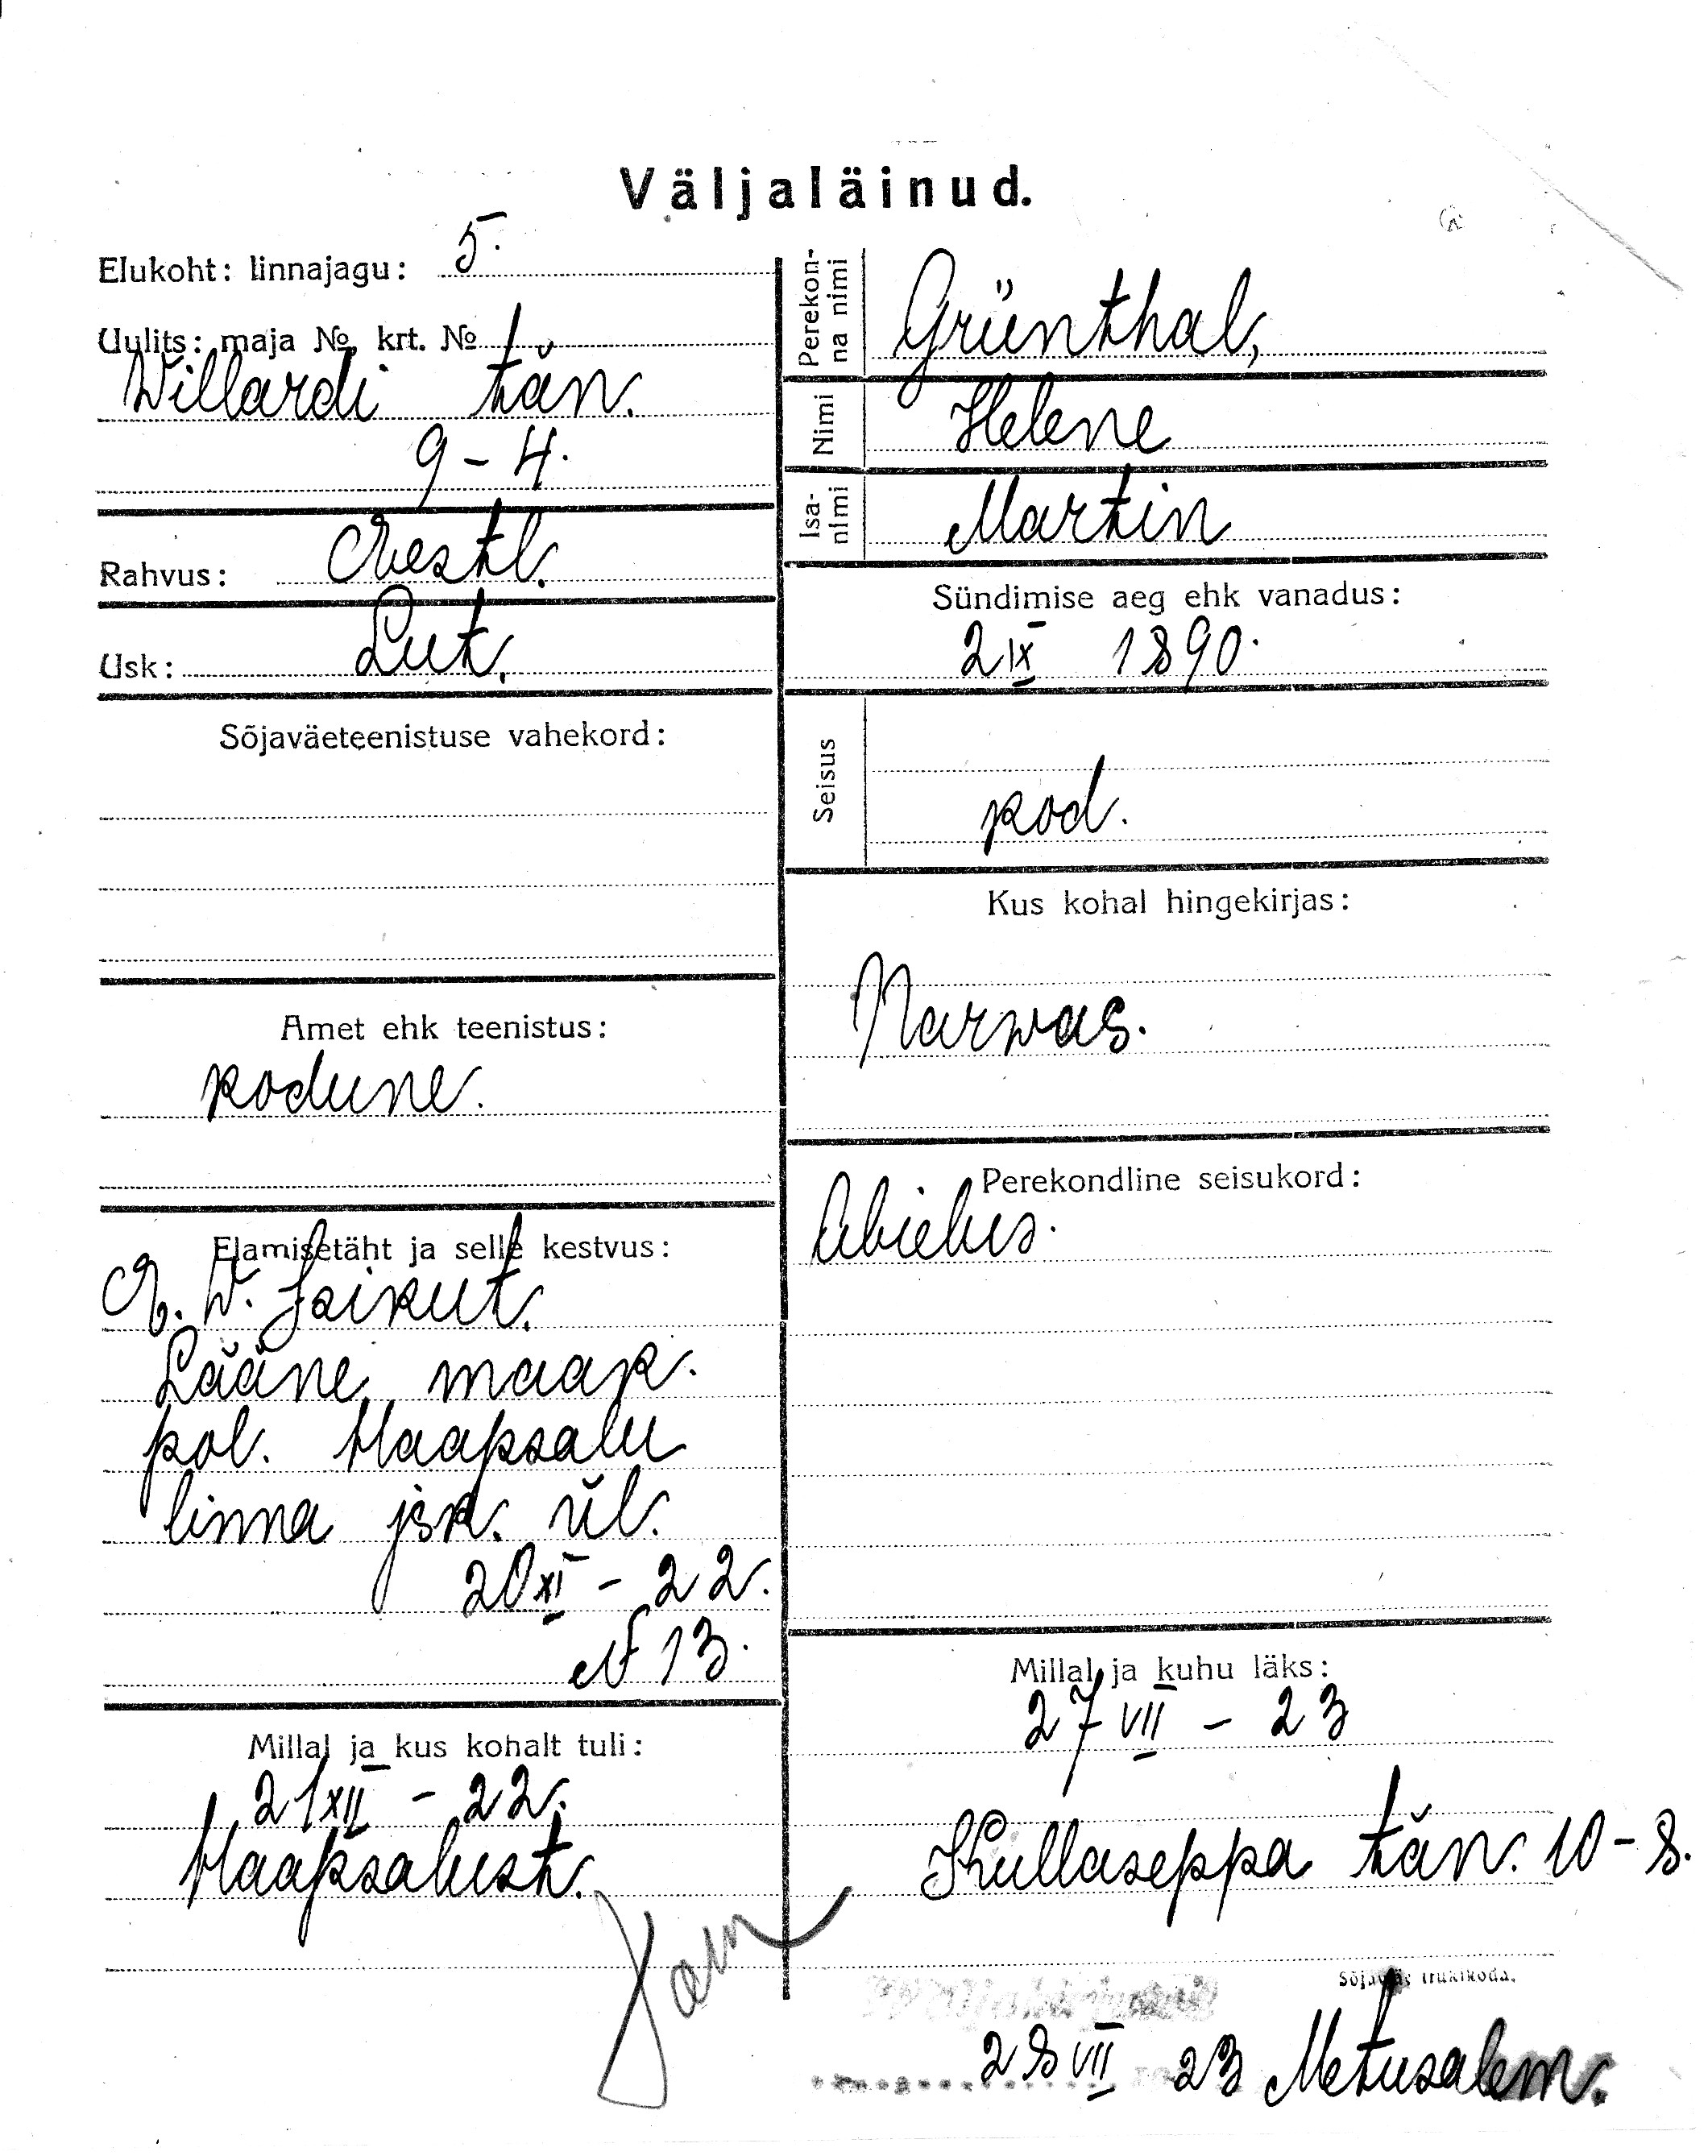 Väljaläinud.
Elukoht: linnajagu: 5.
Uulits: maja № krt. №
Willardi tän.
9 – 4.
Rahvus: Eestl.
Usk: Lut.
Sõjaväeteenistuse vahekord:
Amet ehk teenistus:
kodune.
Elamisetäht ja selle kestvus:
E. W. Isikut.
Lääne maak.
pol. Haapsalu
linna jsk. ül.
20 XI – 22.
№ 13.
Millal ja kus kohalt tuli:
21 XII – 22.
Haapsalust.
Perekonna nimi
Grünthal,
Nimi
Helene
Isanimi
Martin
Sündimise aeg ehk vanadus:
2 IX 1890.
Seisus
kod.
Kus kohal hingekirjas:
Narwas.
Perekondline seisukord:
Abielus.
Millal ja kuhu läks:
27 VII – 23
Kullaseppa tän. 10 – 8.
Sõjaväe trükikoda.
28 VII 23 Metusalem.